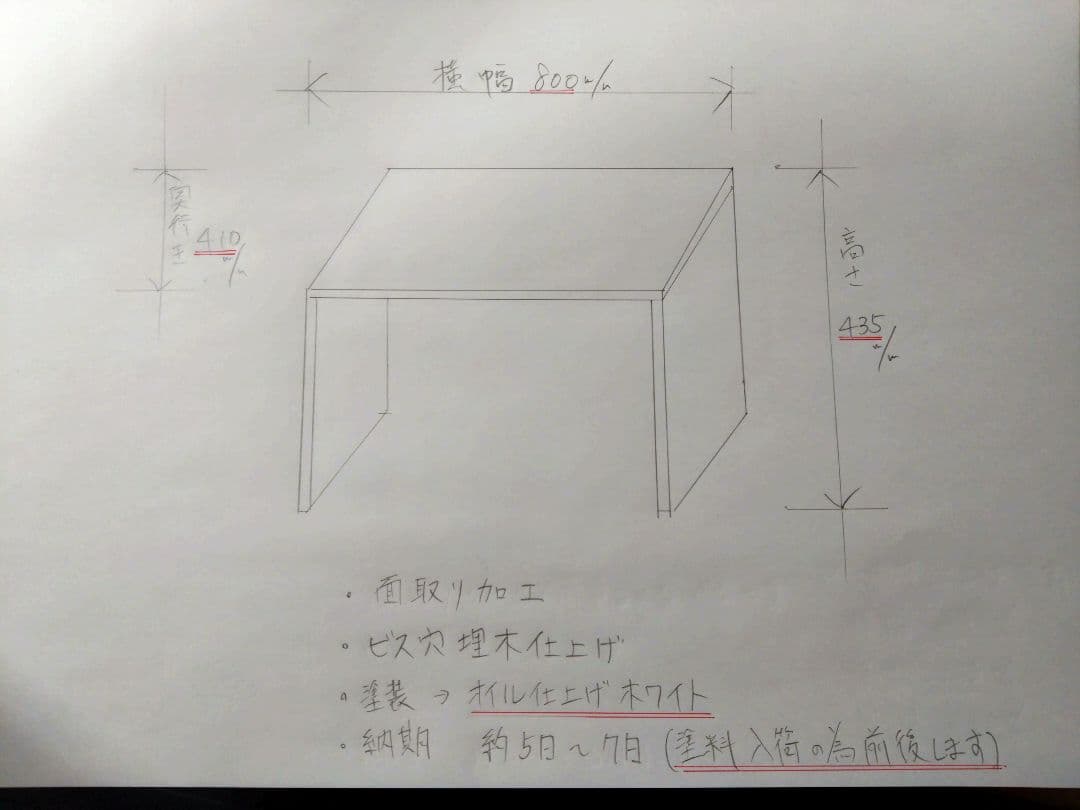 横幅 800m/m
奥行き 410m/m
高さ 435m/m
・面取り加工
・ビス穴埋木仕上げ
・塗装→オイル仕上げホワイト
・納期 約5日～7日(塗料入荷の為前後します)